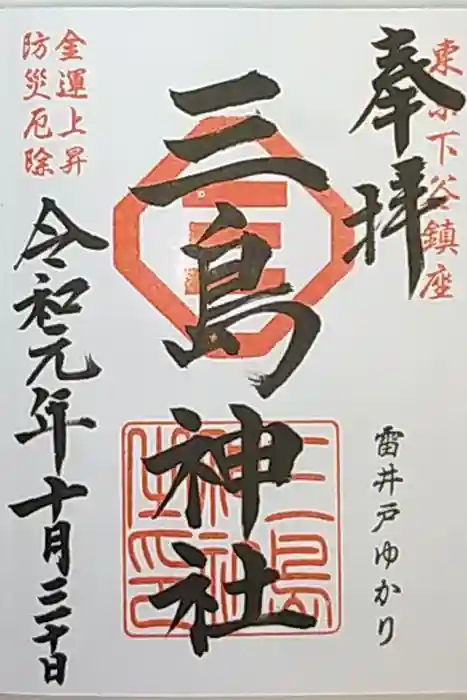 奉拝
東京下谷鎮座
雷井戸ゆかり
三島神社
三島神社之印
金運上昇
防災厄除
令和元年十月三十日